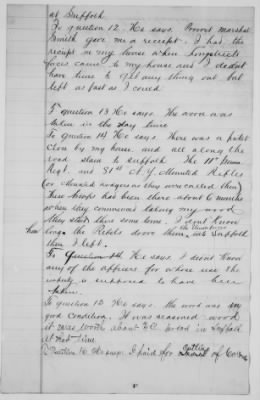 at Suffolk
To question 12. He says. Provost marshal
Smith gave me a receipt. I had the
receipt in my house when Longstreets
forces came to my house and I didnt
have time to get any thing out but
left as fast as I could
To question 13 He says. The wood was
taken in the day time
To question 14 He says. There was a picket
close by my house. and all along the
road down to Suffolk. The 11th Penna
Regt. and 51st N.Y. Mounted Rifles
(or Mounted as they were called then)
These troops had been there about 6 months
when they commenced taking my wood
they staid there some time. I dont know
how long the Rebels drove them into Suffolk
then I left.
To Question He says I didnt know
any of the officers for whose use the
property is supposed to have been
taken
To question 15 He says. The wood was in
good condition. It was seasoned wood
it was worth about in Suffolk
at that time
To Question 16 He says. I paid for cutting